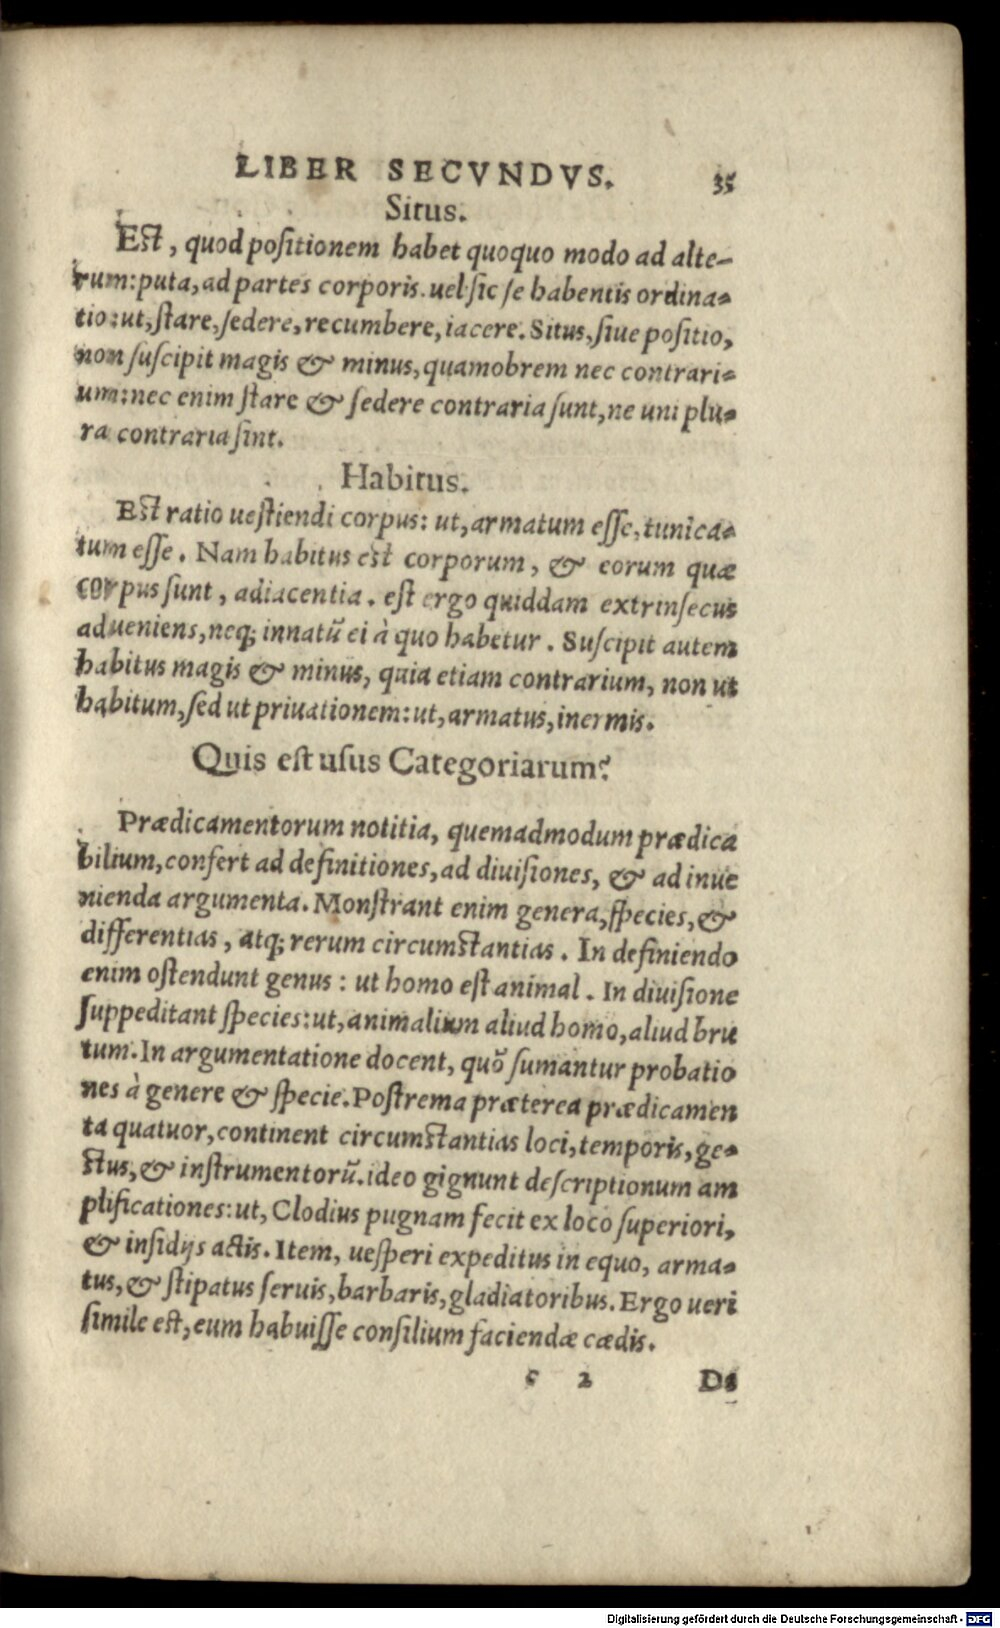 LIBER SECVNDVS. 35
Situs.
Eſt, quod poſitionem habet quoquo modo ad alte-
rum: puta, ad partes corporis. uel ſic ſe habentis ordina-
tio: ut, ſtare, ſedere, recumbere, iacere. Situs, ſiue poſitio,
non ſuſcipit magis & minus, quamobrem nec contrari-
um: nec enim ſtare & ſedere contraria ſunt, ne uni plu-
ra contraria ſint.
Habitus.
Eſt ratio ueſtiendi corpus: ut, armatum eſſe, tunica-
tum eſſe. Nam habitus eſt corporum, & eorum quæ
corpus ſunt, adiacentia. eſt ergo quiddam extrinſecus
adueniens, neq; innatū ei à quo habetur. Suſcipit autem
habitus magis & minus, quia etiam contrarium, non ut
habitum, ſed ut priuationem: ut, armatus, inermis.
Quis eſt uſus Categoriarum?
Prædicamentorum notitia, quemadmodum prædica
bilium, confert ad definitiones, ad diuiſiones, & ad inue
nienda argumenta. Monſtrant enim genera, ſpecies, &
differentias, atq; rerum circumſtantias. In definiendo
enim oſtendunt genus: ut homo eſt animal. In diuiſione
ſuppeditant ſpecies: ut, animalium aliud homo, aliud bru
tum. In argumentatione docent, quō ſumantur probatio
nes à genere & ſpecie. Poſtrema præterea prædicamen
ta quatuor, continent circumſtantias loci, temporis, ge-
ſtus, & inſtrumentorū. ideo gignunt deſcriptionum am
plificationes: ut, Clodius pugnam fecit ex loco ſuperiori,
& inſidijs actis. Item, ueſperi expeditus in equo, arma-
tus, & ſtipatus ſeruis, barbaris, gladiatoribus. Ergo ueri
ſimile eſt, eum habuiſſe conſilium faciendæ cædis.
c 2 De
Digitalisierung gefördert durch die Deutsche Forschungsgemeinschaft - DFG